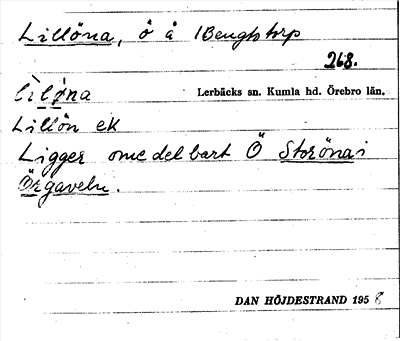 Lillöna, ö å 1Bengtstorp
268.
lìlø̀na Lerbäcks sn. Kumla hd. Örebro län.
Lillön ek
Ligger omedelbart Ö Storöna i
Örgaveln.
DAN HÖJDESTRAND 1958